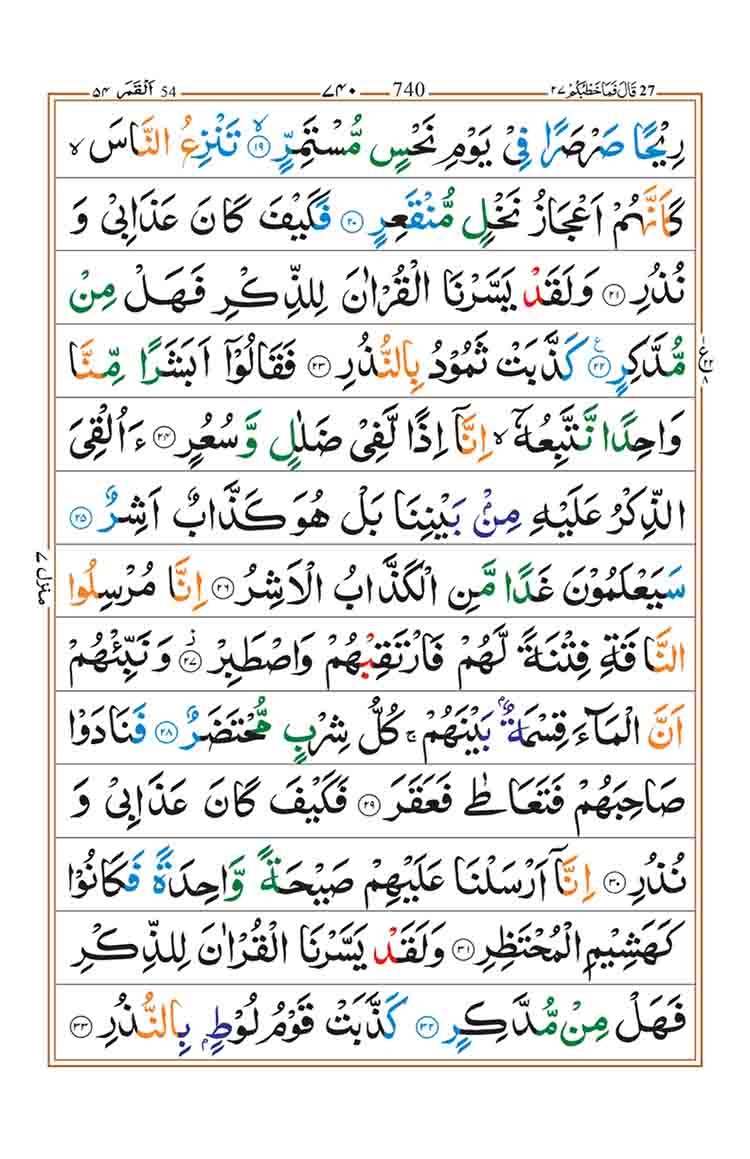 ٥٤ اَلْقَمَر 54 ٧٤٠ 740 ٢٧ قَالَ فَمَا خَطْبُكُمْ 27
رِيْحًا صَرْصَرًا فِيْ يَوْمِ نَحْسٍ مُّسْتَمِرٍّ ۙ۝١٩ تَنْزِعُ النَّاسَ ۙ
كَاَنَّهُمْ اَعْجَازُ نَخْلٍ مُّنْقَعِرٍ ۝٢٠ فَكَيْفَ كَانَ عَذَابِيْ وَ
نُذُرِ ۝٢١ وَلَقَدْ يَسَّرْنَا الْقُرْاٰنَ لِلذِّكْرِ فَهَلْ مِنْ
مُّدَّكِرٍ ۧ۝٢٢ كَذَّبَتْ ثَمُوْدُ بِالنُّذُرِ ۝٢٣ فَقَالُوْٓا اَبَشَرًا مِّنَّا
وَاحِدًا نَّتَّبِعُهٗٓ ۙ اِنَّآ اِذًا لَّفِيْ ضَلٰلٍ وَّسُعُرٍ ۝٢٤ ءَاُلْقِيَ
الذِّكْرُ عَلَيْهِ مِنْۢ بَيْنِنَا بَلْ هُوَ كَذَّابٌ اَشِرٌ ۝٢٥
سَيَعْلَمُوْنَ غَدًا مَّنِ الْكَذَّابُ الْاَشِرُ ۝٢٦ اِنَّا مُرْسِلُوا
النَّاقَةِ فِتْنَةً لَّهُمْ فَارْتَقِبْهُمْ وَاصْطَبِرْ ۝٢٧ؗ وَنَبِّئْهُمْ
اَنَّ الْمَآءَ قِسْمَةٌۢ بَيْنَهُمْ ۚ كُلُّ شِرْبٍ مُّحْتَضَرٌ ۝٢٨ فَنَادَوْا
صَاحِبَهُمْ فَتَعَاطٰى فَعَقَرَ ۝٢٩ فَكَيْفَ كَانَ عَذَابِيْ وَ
نُذُرِ ۝٣٠ اِنَّآ اَرْسَلْنَا عَلَيْهِمْ صَيْحَةً وَّاحِدَةً فَكَانُوْا
كَهَشِيْمِ الْمُحْتَظِرِ ۝٣١ وَلَقَدْ يَسَّرْنَا الْقُرْاٰنَ لِلذِّكْرِ
فَهَلْ مِنْ مُّدَّكِرٍ ۝٣٢ كَذَّبَتْ قَوْمُ لُوْطٍۭ بِالنُّذُرِ ۝٣٣
منزل ٧